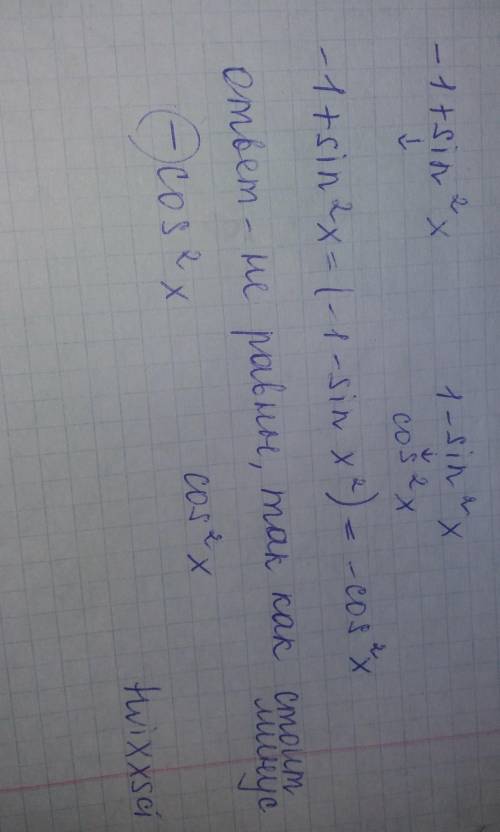 -1+sin²x 1-sin²x
↓ ↓
cos²x
-1+sin²x=(-1-sin x²)= -cos²x
ответ - не равны, так как стоит
минус
-cos²x cos²x
hvixxsci